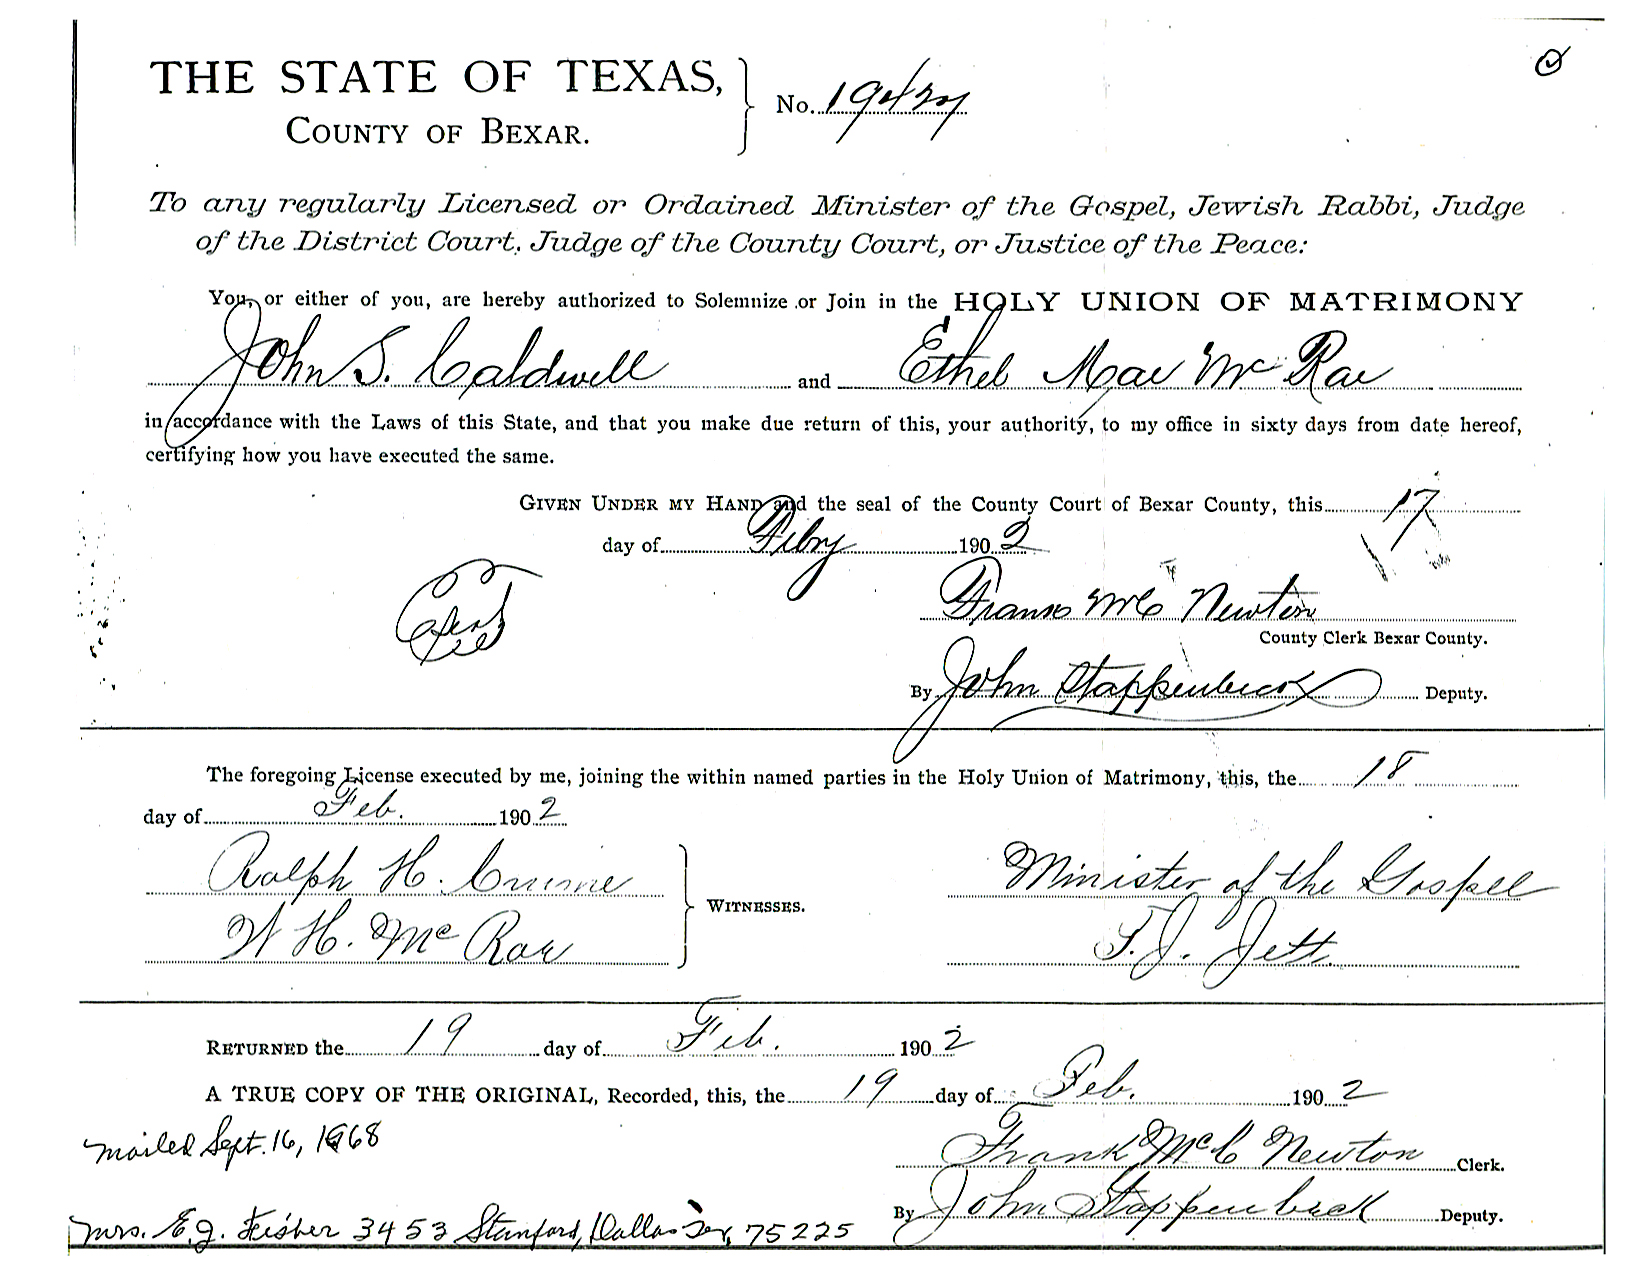 THE STATE OF TEXAS,
COUNTY OF BEXAR.
No. 19427
To any regularly Licensed or Ordained Minister of the Gospel, Jewish Rabbi, Judge
of the District Court, Judge of the County Court, or Justice of the Peace:
You, or either of you, are hereby authorized to Solemnize or Join in the HOLY UNION OF MATRIMONY
John S. Caldwell and Ethel Mae McRae
in accordance with the Laws of this State, and that you make due return of this, your authority, to my office in sixty days from date hereof,
certifying how you have executed the same.
GIVEN UNDER MY HAND and the seal of the County Court of Bexar County, this 17
day of Feby 1902
Frank McC Newton
County Clerk Bexar County.
By John Stappenbeck Deputy.
The foregoing License executed by me, joining the within named parties in the Holy Union of Matrimony, this, the 18
day of Feb. 1902
Ralph H. 
W H. McRae
WITNESSES.
Minister of the Gospel
T. J. Jett
RETURNED the 19 day of Feb. 1902
A TRUE COPY OF THE ORIGINAL, Recorded, this, the 19 day of Feb. 1902
Frank McC Newton Clerk.
By John Stappenbeck Deputy.
mailed Sept. 16, 1968
Mrs. E. J. Fisher 3453 Stanford, Dallas Tex, 75225